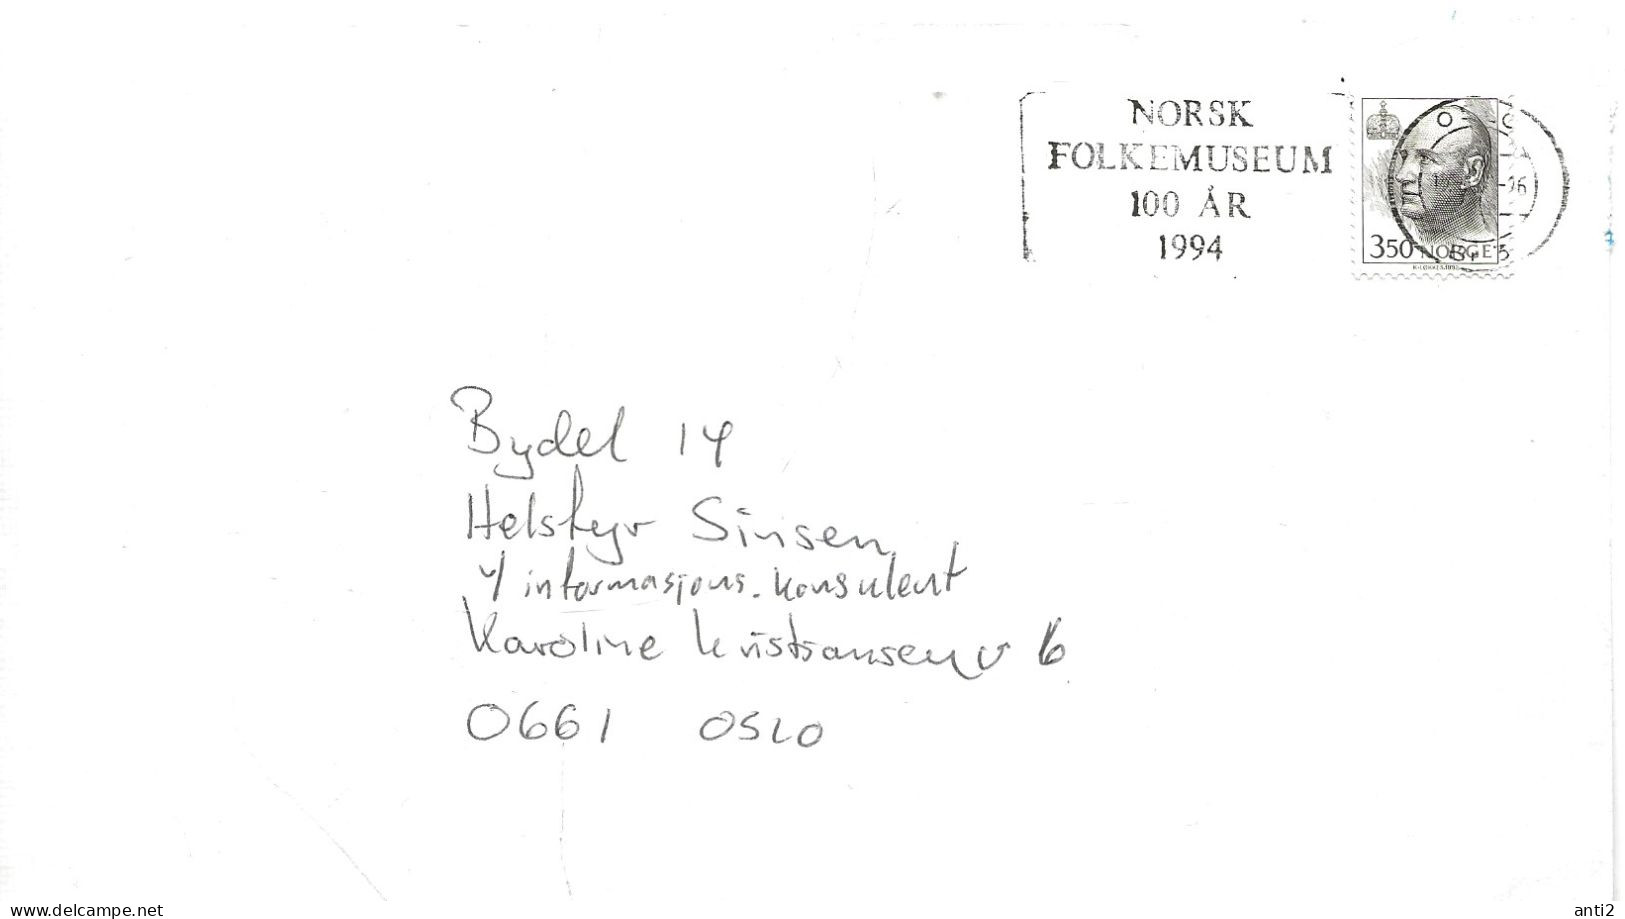 NORSK
FOLKEMUSEUM
100 ÅR
1994
350 NORGE
Bydel 14
Helstyr Sinsen
v/ informasjons.konsulent
Karoline Kristiansen v 6
0661 OSLO
www.delcampe.net
anti2